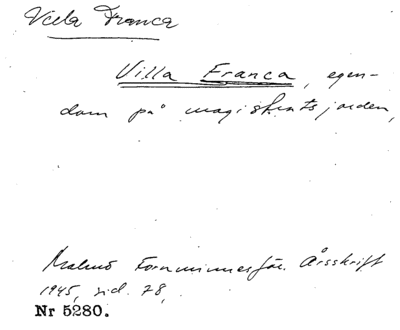 Villa Franca
Villa Franca, egen-
dom på magistratsjorden,
Malmö Fornminnesför. Årsskrift
1945, sid. 78,
Nr 5280.